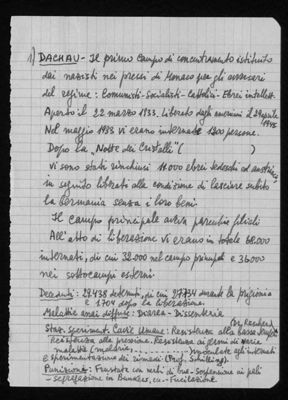 1) DACHAU - Il primo campo di concentramento istituito
dai nazisti nei pressi di Monaco per gli avversari
del regime: Comunisti - Socialisti - Cattolici - Ebrei intellett.
Aperto il 22 marzo 1933. Liberato dagli americani il 29 aprile 1945
Nel maggio 1933 vi erano internate 1200 persone.
Dopo la "Notte dei Cristalli" ( )
vi sono stati rinchiusi 11.000 ebrei tedeschi ed austriaci
in seguito liberati alla condizione di lasciare subito
la Germania senza i loro beni.
Il campo principale aveva parecchie filiali
All'atto di liberazione vi erano in totale 68.000
internati, di cui 32.000 nel campo principale e 36000
nei sottocampi esterni.
Deceduti: 29.438 detenuti, di cui durante la prigionia
e 1704 dopo la liberazione.
Malattie assai diffuse: Diarrea - Dissenteria
(Dr. Rascher)
Staz. Speriment. Cavie Umane: Resistenza alla bassa
Resistenza alla pressione. Resistenza ai germi di varie
malattie (malaria, inoculate agli internati
e sperimentazione dei rimedi (Prof. Schilling).
Punizioni: Frustate con nerbi di bue - Sospensione ai pali
- Segregazione in Bunker, - Fucilazione.